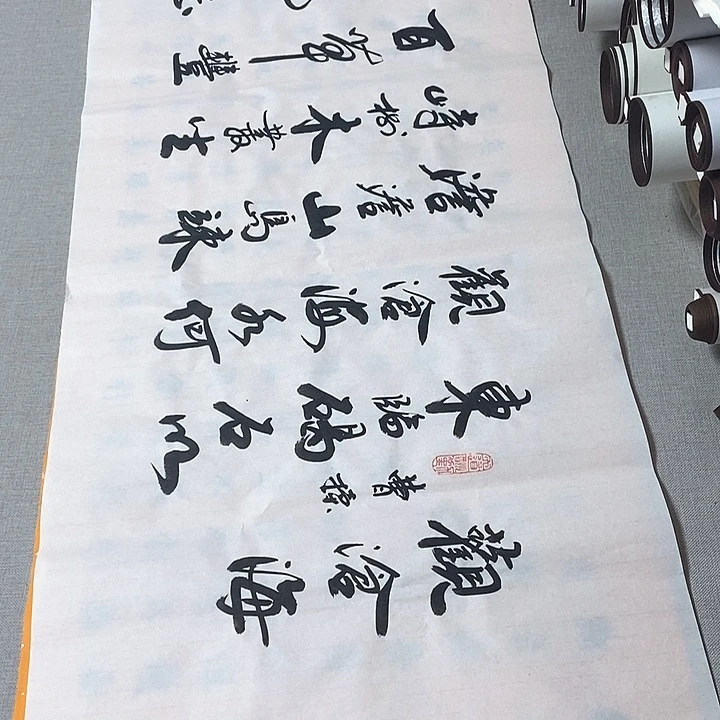 觀滄海
曹操
東臨碣石以
觀滄海水何
澹澹山島竦
峙樹木叢生
百草豐